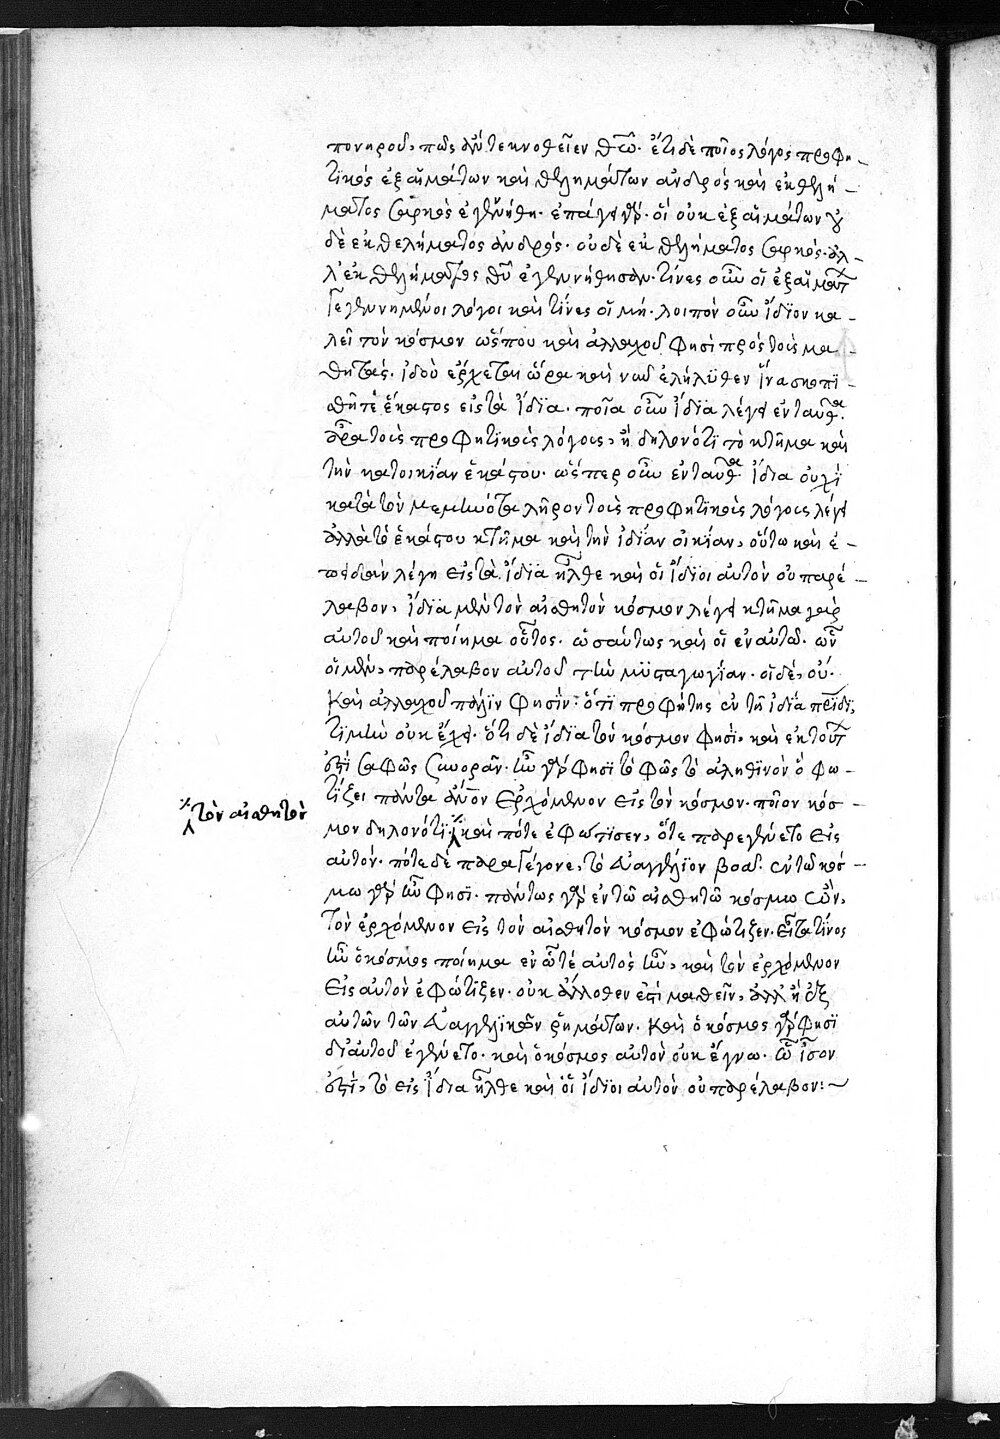 πονηροῦ, πῶς ἂν τεκνοθεῖεν θῶ. ἔτι δὲ ποῖος λόγος προφη-
τικὸς ἐξ αἱμάτων καὶ θελημάτων ἀνδρὸς καὶ ἐκ θελή-
ματος σαρκὸς ἐγεννήθη. ἐπάγει γὰρ. οἳ οὐκ ἐξ αἱμάτων οὐ
δὲ ἐκ θελήματος ἀνδρός. οὐδὲ ἐκ θελήματος σαρκός. ἀλ-
λ' ἐκ θελήματος θῦ ἐγεννήθησαν. τίνες οὖν οἱ ἐξ αἱμάτ
γεγεννημένοι λόγοι καὶ τίνες οἱ μή. λοιπὸν οὖν ἴδϊον κα-
λεῖ τὸν κόσμον ὥσπου καὶ ἀλλαχοῦ φησὶ πρὸς τοῖς μα-
θητάς. ἰδοὺ ἔρχεται ὥρα καὶ νῦν ἐλήλυθεν ἵνα σκορπϊ-
σθῆτε ἕκαστος εἰς τὰ ἴδϊα. ποῖα οὖν ἴδϊα λέγει ἐνταῦθα.
ἆρα τοῖς προφητϊκοῖς λόγοις, ἢ δηλονότϊ τὸ κτῆμα καὶ
τὴν κατοικίαν ἑκάστου. ὥσπερ οὖν ἐνταῦθα ἴδια οὐχὶ
κατὰ τὸν μεμηνότα λῆρον τοῖς προφητϊκοῖς λόγοις λέγει
ἀλλὰ τὸ ἑκάστου κτῆμα καὶ τὴν ἰδίαν οἰκίαν, οὕτω καὶ ἐ-
πειδὰν λέγη εἰς τὰ ἴδϊα ἦλθε καὶ οἱ ἴδϊοι αὐτὸν οὐ παρέ-
λαβον, ἴδϊα μὲν τὸν αἰσθητὸν κόσμον λέγει κτῆμα γὰρ
αὐτοῦ καὶ ποίημα οὗτος. ὡσαύτως καὶ οἱ ἐν αὐτῶ. ὧν
οἱ μὲν, παρέλαβον αὐτοῦ τὴν μϋσταγωγίαν. οἱ δέ, οὔ.
Καὶ ἀλλαχοῦ πάλϊν φησὶν. ὅτϊ προφήτης ἐν τῆ ἰδία πρϊδϊ,
τϊμὴν οὐκ ἔχει. ὅτϊ δὲ ἴδϊα τὸν κόσμον φησὶ. καὶ ἐκ τούτ
ἐστὶ σαφῶς συνορᾶν. ἦν γὰρ φησὶ τὸ φῶς τὸ ἀληθϊνὸν ὃ φω-
τΐζει πάντα ἄνον ἐρχόμενον εἰς τὸν κόσμον. ποῖον κόσ-
μον δηλονότϊ. καὶ πότε ἐφώτϊσεν, ὅτε παρεγένετο εἰς
⁒ τὸν αἰσθητὸν
αὐτόν. πότε δὲ παραγέγονε, τὸ εὐαγγέλϊον βοᾶ. ἐν τῶ κόσ-
μω γὰρ ἦν φησϊ. πάντως γὰρ ἐν τῶ αἰσθητῶ κόσμω ὢν,
τὸν ἐρχόμενον εἰς τὸν αἰσθητὸν κόσμον ἐφώτιζεν. εἶτα τίνος
ἦν ὁ κόσμος ποίημα ἐν ὧ τέ αὐτὸς ἦν, καὶ τὸν ἐρχόμενον
εἰς αὐτὸν ἐφώτϊζεν. οὐκ ἄλλοθεν ἐστὶ μαθεῖν, ἀλλ' ἢ ἐξ
αὐτῶν τῶν εὐαγγελϊκῶν ῥημάτων. Καὶ ὁ κόσμος γὰρ φησϊ
δϊ' αὐτοῦ ἐγένετο. καὶ ὁ κόσμος αὐτὸν οὐκ ἔγνω. ὧ ἴσον
ἐστὶ, τὸ εἰς ἴδια ἦλθε καὶ οἱ ἴδϊοι αὐτὸν οὐ παρέλαβον:~